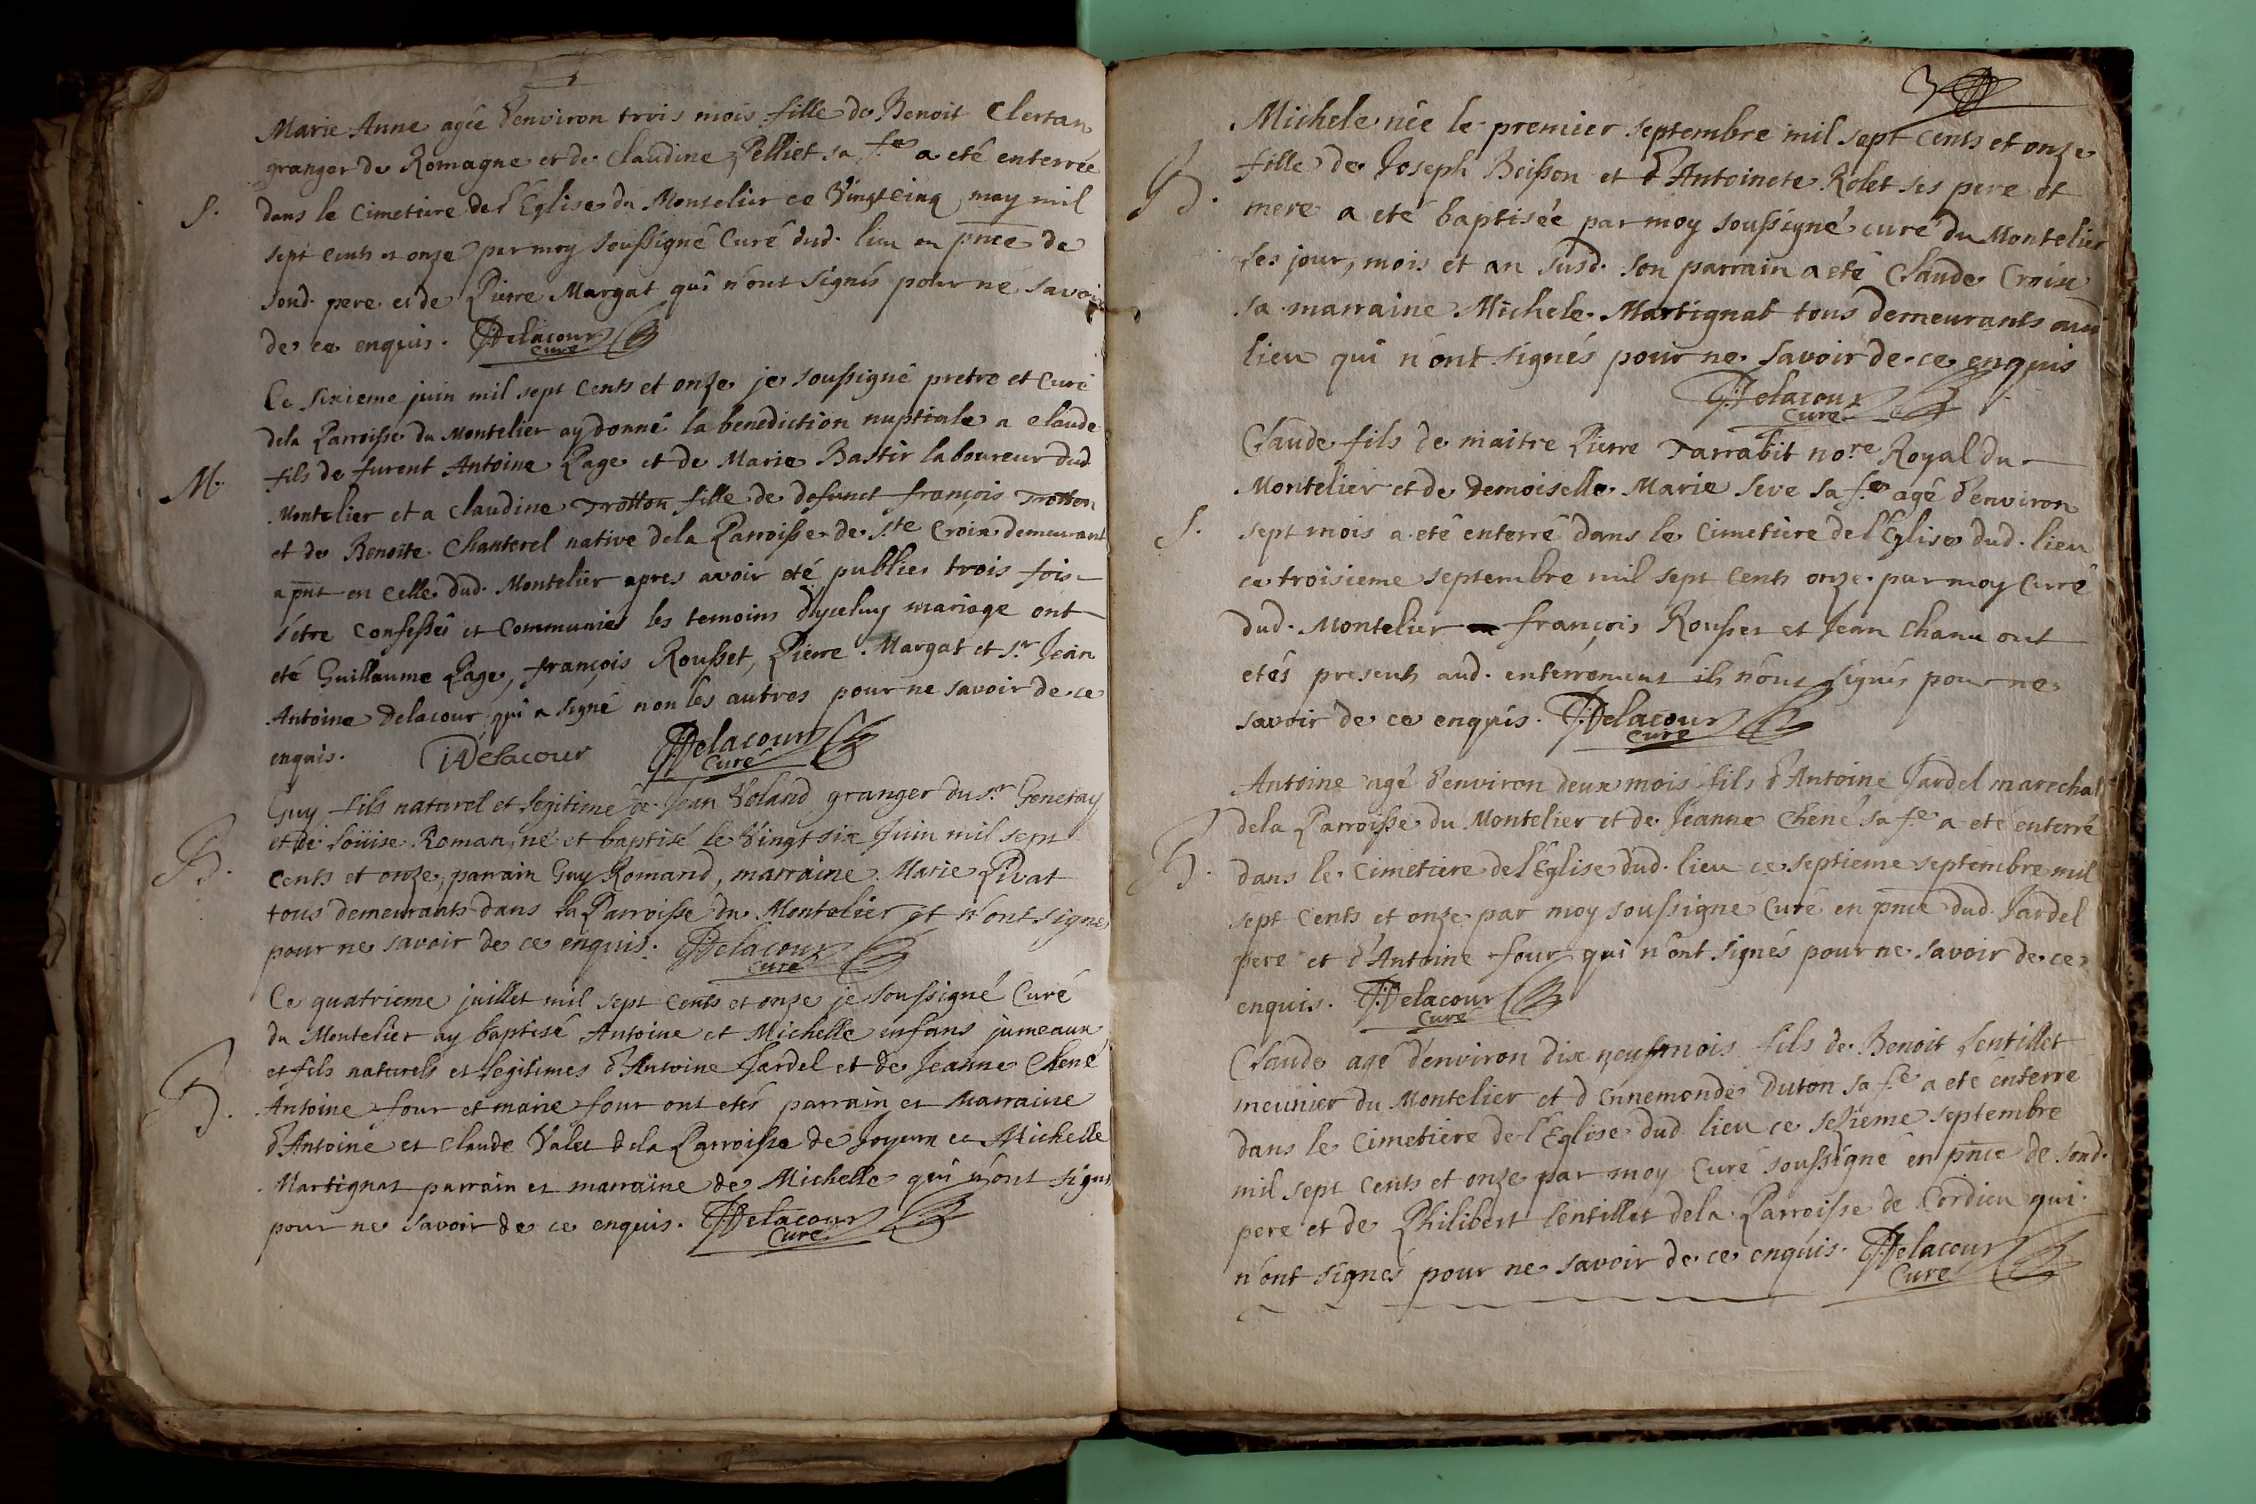 Marie Anne agée d'environ trois mois fille de Benoit Clertan
granger de Romagne et de Claudine Pelliet sa fe a eté enterrée
S. dans le Cimetiere de l'Eglise du Montelier ce Vingt cinq may mil
sept cents et onze par moy soussigné Curé dud. lieu en pnce de
sond. pere et de Pierre Margat qui n'ont signés pour ne savoir
de ce enquis. Delacour
curé
Ce sixieme juin mil sept cents et onze je soussigné pretre et Curé
dela Parroisse du Montelier ay donné la benediction nuptiale a Claude
M. fils de furent Antoine Page et de Marie Bastir laboureur dud.
Montelier et a Claudine Trotton fille de defunct françois Trotton
et de Benoite Chanterel native dela Parroisse de Ste Croix demeurant
a pnt en celle dud. Montelier apres avoir eté publies trois fois
s'etre Confessés et Communies les temoins d'yceluy mariage ont
eté Guillaume Page, françois Rousset, Pierre Margat et Sr Jean
Antoine Delacour qui a signé non les autres pour ne savoir de ce
enquis. Delacour Delacour
Curé
Guy fils naturel et legitime de Jean Voland granger du sr Genetay
B. et de Loüise Roman, né et baptisé le Vingt six Juin mil sept
cents et onze, parrain Guy Romand, marraine Marie Pivat
tous demeurants dans la Parroisse du Montelier et n'ont signe
pour ne savoir de ce enquis. Delacour
curé
Ce quatrieme juillet mil sept cents et onze je soussigné Curé
du Montelier ay baptisé Antoine et Michelle enfans jumeaux
et fils naturels et legitimes d'Antoine Jardel et de Jeanne Chené
B. Antoine four et marie four ont etés parrain et marraine
d'Antoine et Claude Valet dela Parroisse de Joyeux et Michelle
Martignat parrain et marraine de Michelle qui n'ont signé
pour ne savoir de ce enquis. Delacour
Curé
3
Michele née le premier septembre mil sept cents et onze
B. fille de Joseph Boisson et d'Antoinete Rolet ses pere et
mere a eté baptisée par moy soussigné curé du Montelier
les jour, mois et an susd. son parrain a eté Claude Croix
sa marraine Michele Martignat tous demeurants aud
lieu qui n'ont signés pour ne savoir de ce enquis
Delacour
Curé
Claude fils de maitre Pierre Tarrabit nore Royal du
Montelier et de Demoiselle Marie Seve sa fe agé d'environ
S. sept mois a eté enterré dans le Cimetiere de l'Eglise dud. lieu
ce troisieme septembre mil sept cents onze par moy Curé
dud. Montelier françois Rousset et Jean Chanu ont
etés presents aud. enterrement ils n'ont signés pour ne
savoir de ce enquis. Delacour
Curé
Antoine agé d'environ deux mois fils d'Antoine Jardel marechal
dela Parroisse du Montelier et de Jeanne Chené sa fe a eté enterré
dans le Cimetiere de l'Eglise dud. lieu ce septieme septembre mil
sept Cents et onze par moy soussigné Curé en pnce dud. Jardel
pere et d'Antoine four qui n'ont signés pour ne savoir de ce
enquis. Delacour
Curé
Claude agé d'environ dix neuf mois fils de Benoit Lentillet
meunier du Montelier et d'Ennemonde Duton sa fe a eté enterré
dans le Cimetiere de l'Eglise dud. lieu ce sezieme septembre
mil sept cents et onze par moy Curé soussigné en pnce de sond.
pere et de Philibert Lentillet dela Parroisse de Cordieu qui
n'ont signés pour ne savoir de ce enquis. Delacour
Curé